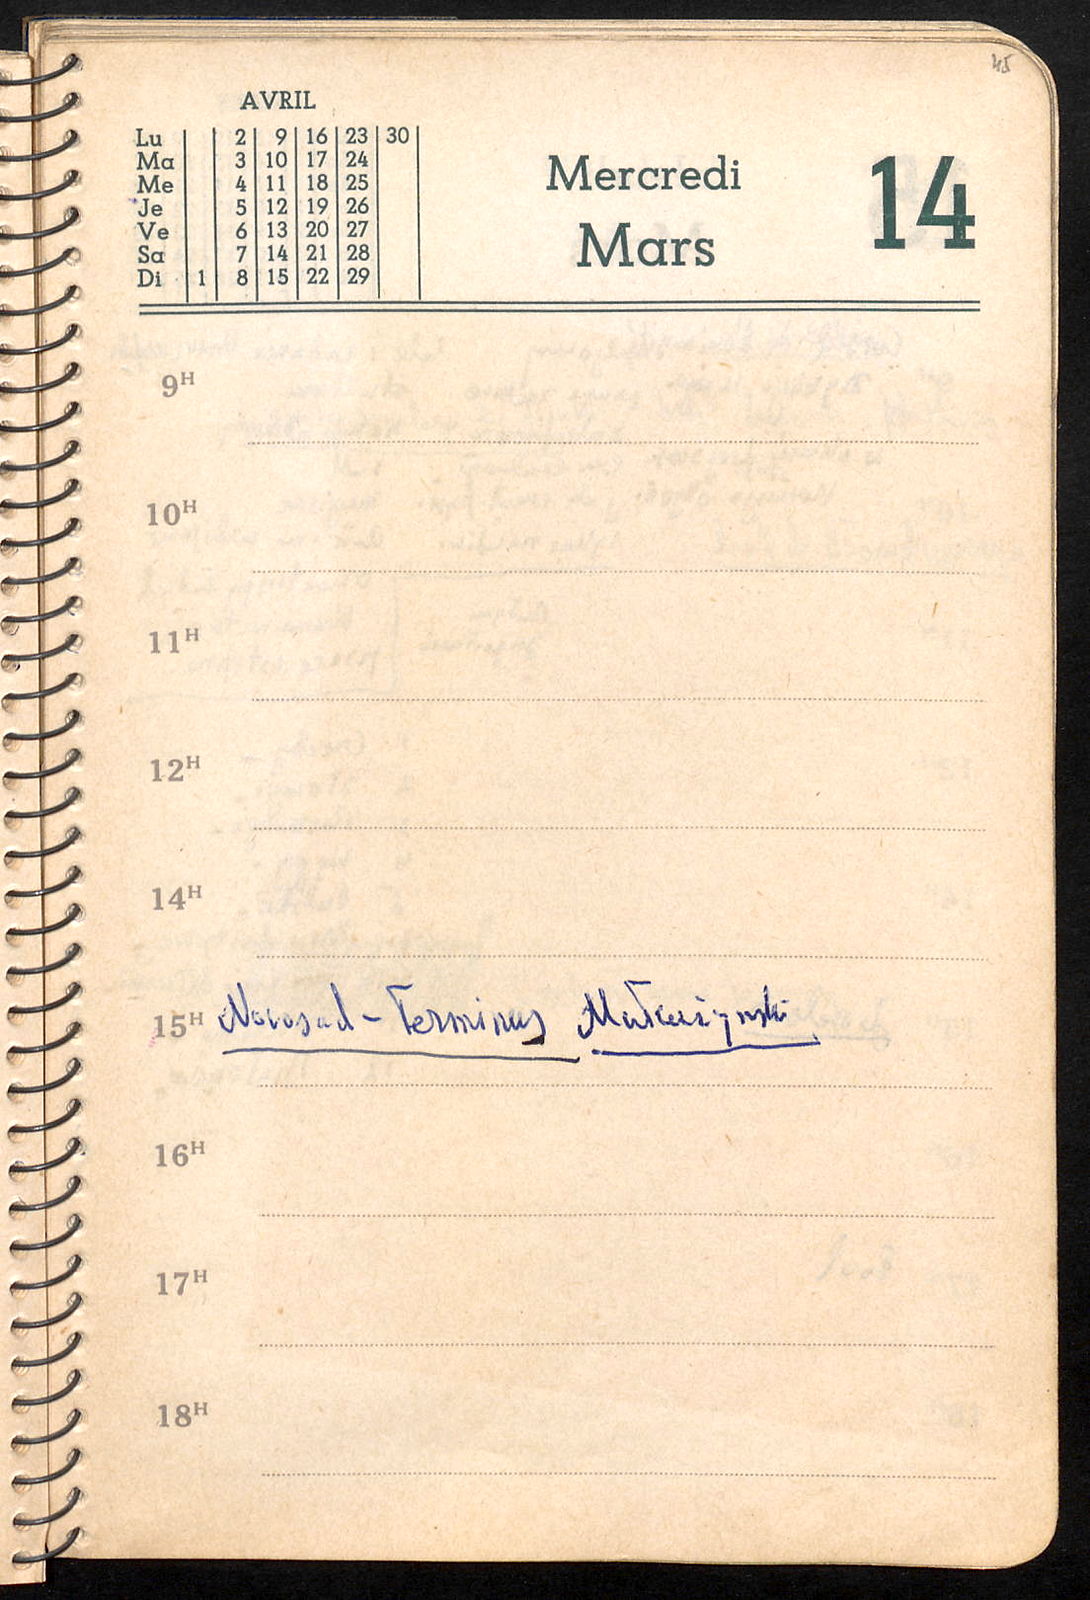 45
AVRIL
Lu 2 9 16 23 30
Ma 3 10 17 24
Me 4 11 18 25
Je 5 12 19 26
Ve 6 13 20 27
Sa 7 14 21 28
Di 1 8 15 22 29
Mercredi 14
Mars
9H
10H
11H
12H
14H
15H Novosad - Terminus
16H
17H
18H